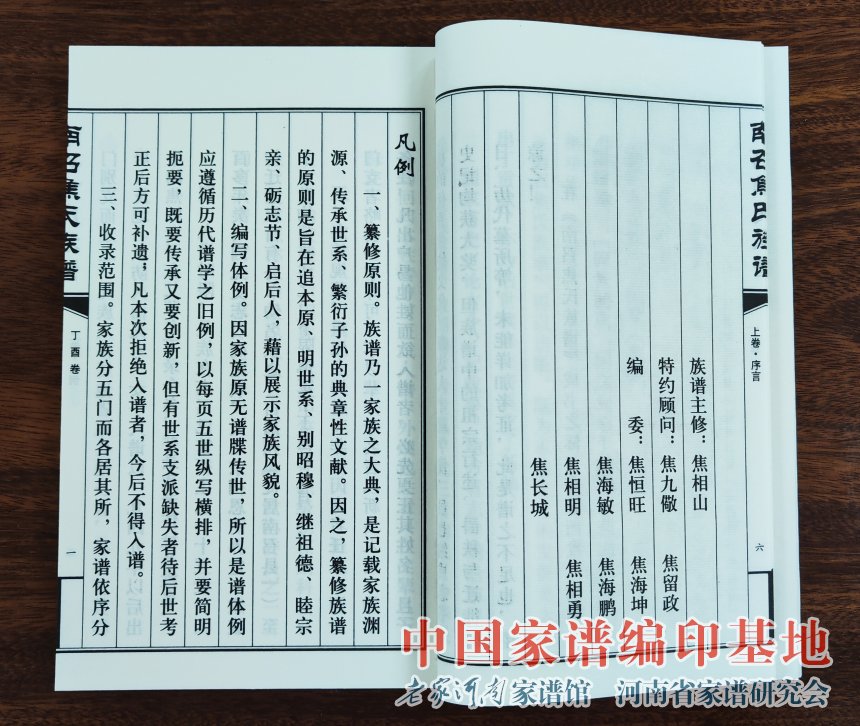 南召焦氏族谱
上卷·序言
六
族谱主修：焦相山
特约顾问：焦九儆 焦留政
编 委：焦恒旺 焦海坤
焦海敏 焦海鹏
焦相明 焦相勇
焦长城
凡例
一、纂修原则。族谱乃一家族之大典，是记载家族渊
源、传承世系、繁衍子孙的典章性文献。因之，纂修族谱
的原则是旨在追本原、明世系、别昭穆、继祖德、睦宗
亲、砺志节、启后人，藉以展示家族风貌。
二、编写体例。因家族原无谱牒传世，所以是谱体例
应遵循历代谱学之旧例，以每页五世纵写横排，并要简明
扼要，既要传承又要创新，但有世系支派缺失者待后世考
正后方可补遗，凡本次拒绝入谱者，今后不得入谱。
三、收录范围。家族分五门而各居其所，家谱依序分
南召焦氏族谱
丁酉卷
一
中国家谱编印基地
老家河南家谱馆 河南省家谱研究会